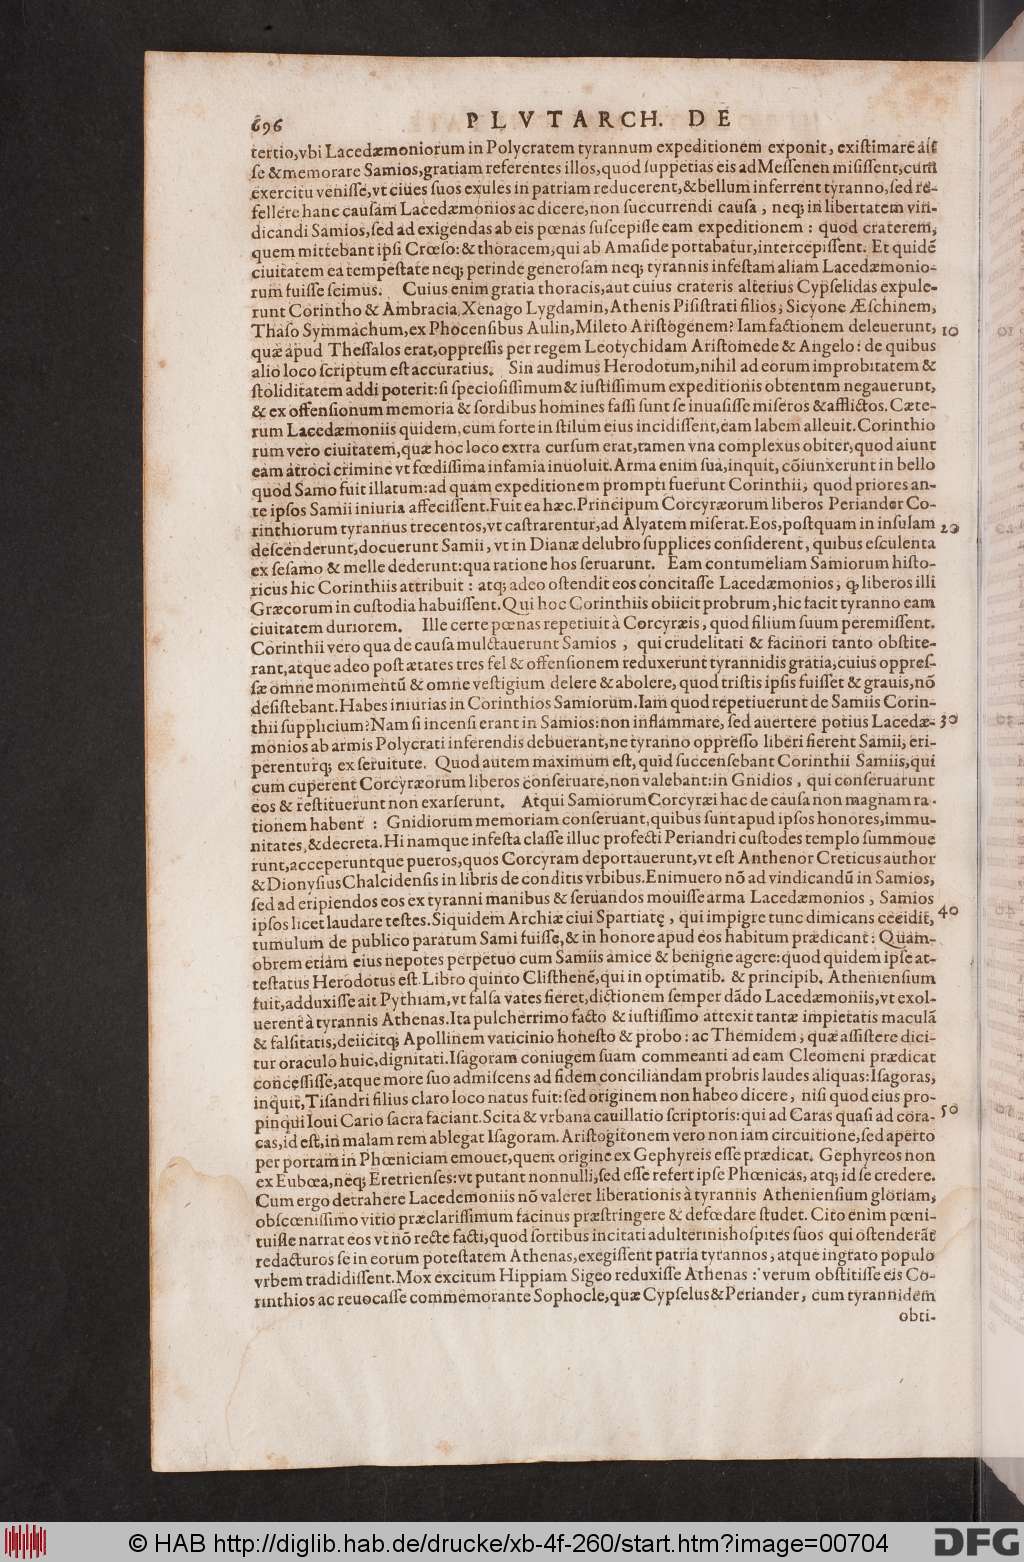 696
PLVTARCH. DE
tertio,vbi Lacedæmoniorum in Polycratem tyrannum expeditionem exponit, existimare ait
se &memorare Samios,gratiam referentes illos,quod suppetias eis ad Messenen misissent,cum
exercitu venisse,vt ciues suos exules in patriam reducerent,&bellum inferrent tyranno,sed re-
fellere hanc causam Lacedæmonios ac dicere,non succurrendi causa , neq; in libertatem vin-
dicandi Samios,sed ad exigendas ab eis pœnas suscepisse eam expeditionem : quod craterem,
quem mittebant ipsi Crœso:&thoracem,qui ab Amaside portabatur,intercepissent. Et quidē
ciuitatem ea tempestate neq; perinde generosam neq; tyrannis infestam aliam Lacedæmonio-
rum fuisse scimus. Cuius enim gratia thoracis,aut cuius crateris alterius Cypselidas expule-
runt Corintho & Ambracia, Xenago Lygdamin,Athenis Pisistrati filios; Sicyone Æschinem,
Thaso Symmachum,ex Phocensibus Aulin,Mileto Aristogenem? Iam factionem deleuerunt, 10
quæ apud Thessalos erat,oppressis per regem Leotychidam Aristomede & Angelo: de quibus
alio loco scriptum est accuratius. Sin audimus Herodotum,nihil ad eorum improbitatem &
stoliditatem addi poterit:si speciosissimum& iustissimum expeditionis obtentum negauerunt,
& ex offensionum memoria & sordibus homines fassi sunt se inuasisse miseros &afflictos. Cæte-
rum Lacedæmoniis quidem,cum forte in stilum eius incidissent,eam labem alleuit. Corinthio
rum vero ciuitatem,quæ hoc loco extra cursum erat,tamen vna complexus obiter,quod aiunt
eam atroci crimine vt fœdissima infamia inuoluit. Arma enim sua,inquit, cōiunxerunt in bello
quod Samo fuit illatum:ad quam expeditionem prompti fuerunt Corinthii; quod priores an-
te ipsos Samii iniuria affecissent. Fuit ea hæc. Principum Corcyræorum liberos Periander Co-
rinthiorum tyrannus trecentos,vt castrarentur,ad Alyatem miserat. Eos,postquam in insulam 20
descenderunt,docuerunt Samii, vt in Dianæ delubro supplices considerent, quibus esculenta
ex sesamo & melle dederunt:qua ratione hos seruarunt. Eam contumeliam Samiorum histo-
ricus hic Corinthiis attribuit : atq; adeo ostendit eos concitasse Lacedæmonios, ꝙ liberos illi
Græcorum in custodia habuissent. Qui hoc Corinthiis obiicit probrum,hic facit tyranno eam
ciuitatem duriorem. Ille certe pœnas repetiuit à Corcyræis, quod filium suum peremissent.
Corinthii vero qua de causa mulctauerunt Samios , qui crudelitati & facinori tanto obstite-
rant,atque adeo post ætates tres fel & offensionem reduxerunt tyrannidis gratia,cuius oppres-
sæ omne monimentū & omne vestigium delere & abolere, quod tristis ipsis fuisset & grauis,nō
desistebant. Habes iniurias in Corinthios Samiorum. Iam quod repetiuerunt de Samiis Corin-
thii supplicium? Nam si incensi erant in Samios:non inflammare, sed auertere potius Lacedæ- 30
monios ab armis Polycrati inferendis debuerant,ne tyranno oppresso liberi fierent Samii, eri-
perenturq; ex seruitute. Quod autem maximum est, quid succensebant Corinthii Samiis,qui
cum cuperent Corcyræorum liberos conseruare,non valebant:in Gnidios , qui conseruarunt
eos & restituerunt non exarserunt. Atqui Samiorum Corcyræi hac de causa non magnam ra-
tionem habent : Gnidiorum memoriam conseruant,quibus sunt apud ipsos honores,immu-
nitates,&decreta. Hi namque infesta classe illuc profecti Periandri custodes templo summoue
runt,acceperuntque pueros,quos Corcyram deportauerunt,vt est Anthenor Creticus author
& Dionysius Chalcidensis in libris de conditis vrbibus. Enimuero nō ad vindicandū in Samios,
sed ad eripiendos eos ex tyranni manibus & seruandos mouisse arma Lacedæmonios , Samios
ipsos licet laudare testes. Siquidem Archiæ ciui Spartiatę , qui impigre tunc dimicans cecidit, 40
tumulum de publico paratum Sami fuisse,& in honore apud eos habitum prædicant: Quam-
obrem etiam eius nepotes perpetuo cum Samiis amice & benigne agere:quod quidem ipse at-
testatus Herodotus est. Libro quinto Clisthenē,qui in optimatib. & principib. Atheniensium
fuit,adduxisse ait Pythiam,vt falsa vates fieret,dictionem semper dādo Lacedæmoniis,vt exol-
uerent à tyrannis Athenas. Ita pulcherrimo facto & iustissimo attexit tantæ impietatis maculā
& falsitatis,deiicitq; Apollinem vaticinio honesto & probo : ac Themidem, quæ assistere dici-
tur oraculo huic,dignitati. Isagoram coniugem suam commeanti ad eam Cleomeni prædicat
concessisse,atque more suo admiscens ad fidem conciliandam probris laudes aliquas:Isagoras,
inquit,Tisandri filius claro loco natus fuit:sed originem non habeo dicere, nisi quod eius pro-
pinqui Ioui Cario sacra faciant. Scita & vrbana cauillatio scriptoris:qui ad Caras quasi ad cora- 50
cas,id est,in malam rem ablegat Isagoram. Aristogitonem vero non iam circuitione,sed aperto
per portam in Phœniciam emouet,quem origine ex Gephyreis esse prædicat. Gephyreos non
ex Eubœa,neq; Eretrienses:vt putant nonnulli,sed esse refert ipse Phœnicas, atq; id se credere.
Cum ergo detrahere Lacedemoniis nō valeret liberationis à tyrannis Atheniensium gloriam,
obscœnissimo vitio præclarissimum facinus præstringere & defœdare studet. Cito enim pœni-
tuisse narrat eos vt nō recte facti,quod sortibus incitati adulterinis hospites suos qui ostenderāt
redacturos se in eorum potestatem Athenas,exegissent patria tyrannos, atque ingrato populo
vrbem tradidissent. Mox excitum Hippiam Sigeo reduxisse Athenas : verum obstitisse eis Co-
rinthios ac reuocasse commemorante Sophocle,quæ Cypselus&Periander, cum tyrannidem
obti-
© HAB http://diglib.hab.de/drucke/xb-4f-260/start.htm?image=00704
DFG